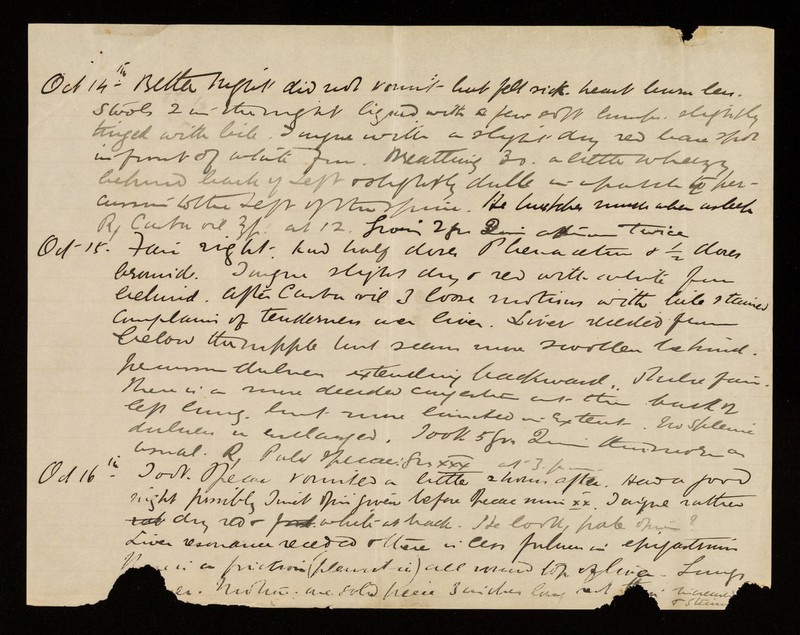 Oct 14th Better night did not vomit - but felt sick heart burn less.
Stools 2 in the night liquid with a few soft lumps. slightly
tinged with bile. Tongue with a slight dry red bare spot
in front of white fur. Breathing 30. a little wheezy
behind back of left & slightly dull in a patch to per-
cussion to the left of the spine. He twitches much when asleep
Rx Castor oil at 12. Given 2 grs Quin twice
Oct 15. Fair night. had half doses Phenacetin & ½ doses
bromide. Tongue slight dry & red with white fur
behind. After Castor oil 3 loose motions with bile stained
Complains of tenderness over liver. Liver receded from
below the nipple but seems more swollen behind.
percussion dulness extending backward.
There is a more decided congestion at the back of
left lung. but more limited in extent. No splenic
dulness is enlarged. Took 5 grs Quin this morn as
usual. Rx Pulv Ipecac grs xxx at 3 pm
Oct 16th Took Ipecac vomited a little 2 hours after. Had a good
night possibly Tinct Opii given before Ipecac min xx. Tongue rather
dry red & white at back. He looks pale
Liver resonance receded & there is less fulness in epigastrium
is a friction (pleuritic) all round top of liver. Lungs
Motion. one solid piece 3 inches long not